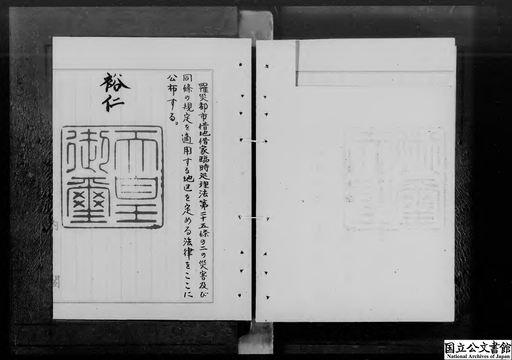 罹災都市借地借家臨時処理法第二十五條の二の災害及び
同條の規定を適用する地区を定める法律をここに
公布する。
裕仁
天皇
御璽
国立公文書館
National Archives of Japan